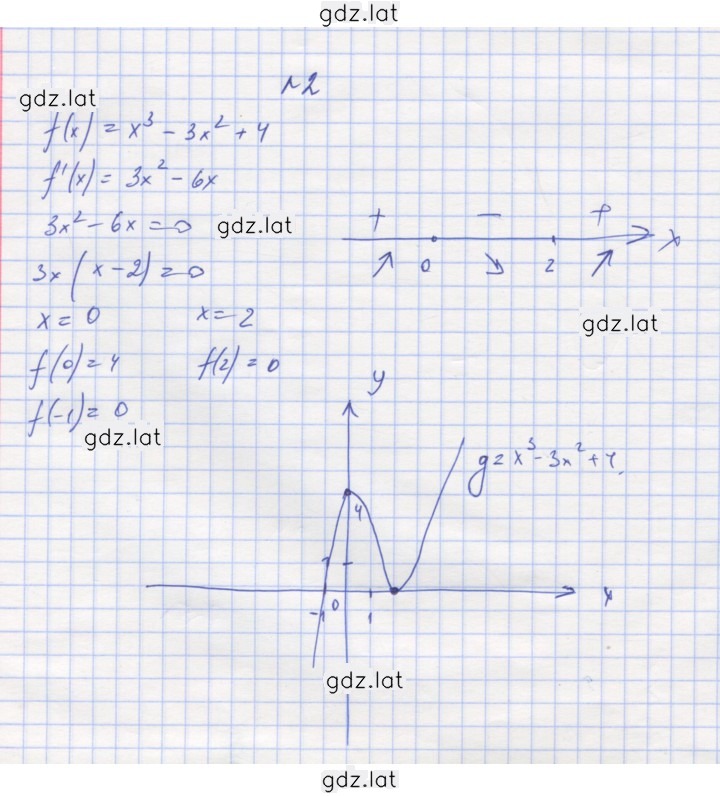 gdz.lat
№2
gdz.lat
f(x) = x³ - 3x² + 4
f'(x) = 3x² - 6x
3x² - 6x = 0
gdz.lat
3x(x-2) = 0
x = 0 x = 2
f(0) = 4 f(2) = 0
f(-1) = 0
gdz.lat
+ - +
0 2 x
gdz.lat
y
y = x³ - 3x² + 4.
4
-1 0 1 x
gdz.lat
gdz.lat